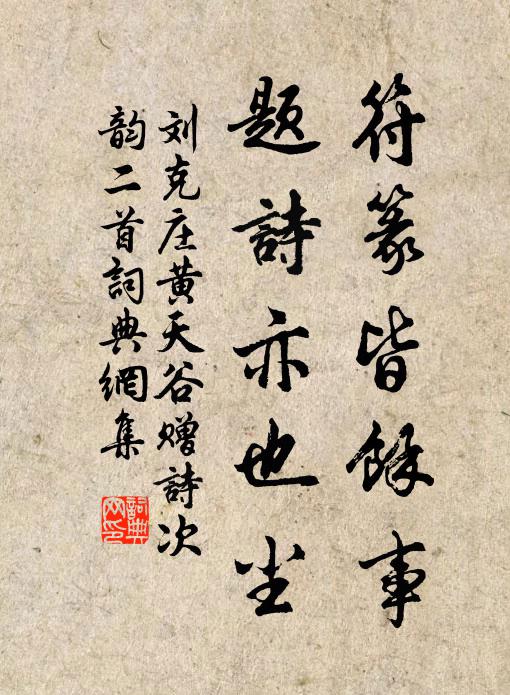 符篆皆餘事
題詩亦也坐
刘克庄黄天谷赠詩次
韵二首詞典網集
詞典
网印